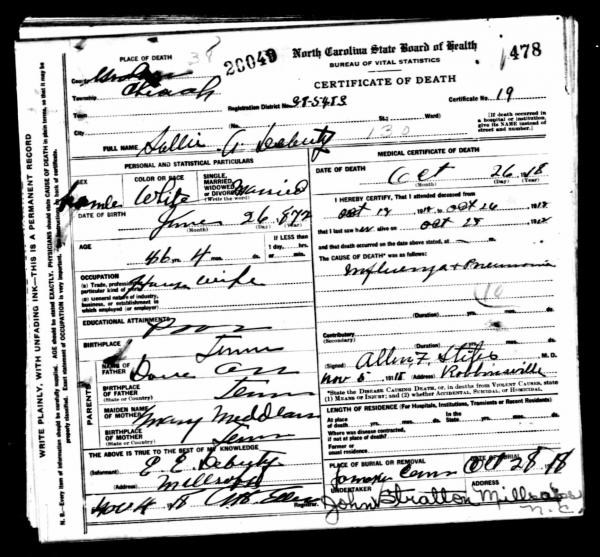 WRITE PLAINLY, WITH UNFADING INK—THIS IS A PERMANENT RECORD
N. B.—Every item of information should be carefully supplied. AGE should be stated EXACTLY. PHYSICIANS should state CAUSE OF DEATH in plain terms, so that it may be
properly classified. Exact statement of OCCUPATION is very important.
38
20049
North Carolina State Board of Health
BUREAU OF VITAL STATISTICS
478
PLACE OF DEATH
CERTIFICATE OF DEATH
County
Township Cheoah
Registration District No. 98-5483
Certificate No. 19
Town
City
(No.
St.;
Ward)
130
(If death occurred in
a hospital or institution,
give its NAME instead of
street and number.)
FULL NAME Sallie
PERSONAL AND STATISTICAL PARTICULARS
SEX
Female
COLOR OR RACE
White
SINGLE,
MARRIED,
WIDOWED
OR DIVORCED
(Write the word)
Married
DATE OF BIRTH
June 26 872
(Month) (Day) (Year)
AGE
46 yrs. 4 mos. ds.
If LESS than
1 day, hrs.
or min.
OCCUPATION
(a) Trade, profession
particular kind of work
House wife
(b) General nature of industry,
business, or establishment in
which employed (or employer)
EDUCATIONAL ATTAINMENTS
Poor
BIRTHPLACE
Tenn
NAME OF
FATHER
PARENTS
BIRTHPLACE
OF FATHER
(State or Country)
Tenn
MAIDEN NAME
OF MOTHER
Mary
BIRTHPLACE
OF MOTHER
(State or Country)
Tenn
THE ABOVE IS TRUE TO THE BEST OF MY KNOWLEDGE
(Informant)
(Address)
Registrar.
MEDICAL CERTIFICATE OF DEATH
DATE OF DEATH
Oct 26 18
(Month) (Day) (Year)
I HEREBY CERTIFY, That I attended deceased from
that I last saw her alive on
and that death occurred on the date above stated, at m.
The CAUSE OF DEATH* was as follows:
Influenza + Pneumonia
10
(Duration) yrs. mos. ds.
Contributory
(Secondary)
(Duration) yrs. mos. ds.
(Signed) Allen F Stiles M. D.
Nov 5 1918 (Address) Robbinsville
*State the DISEASE CAUSING DEATH, or, in deaths from VIOLENT CAUSES, state
(1) MEANS OF INJURY; and (2) whether ACCIDENTAL, SUICIDAL, OR HOMICIDAL.
LENGTH OF RESIDENCE (For Hospitals, Institutions, Transients or Recent Residents)
At place
of death yrs. mos. ds.
In the
State yrs. mos. ds.
Where was disease contracted,
if not at place of death?
Former or
usual residence
PLACE OF BURIAL OR REMOVAL
Oct 28 18
UNDERTAKER
ADDRESS
John Stratton Millsaps
N.C.